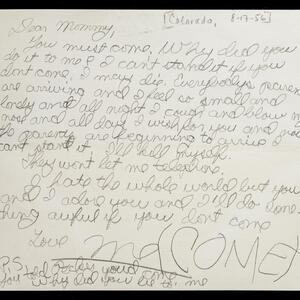 [Colorado, 8-17-56]
Dear Mommy,
You must come. Why did you
do it to me & I can't stand it if you
don't come. I may die. Everybodys parents
are arriving and I feel so small and
lonely and all night I cough and blow my
nose and all day I wish for you and now
the parents are beginning to arrive I
can't stand it. I'll kill myself.
They wont let me telephone.
I hate the whole world but you
and I adore you and I'll do some-
thing awful if you dont come
Love
COME!
P.S.
you told you'd come
Why did you lie to me